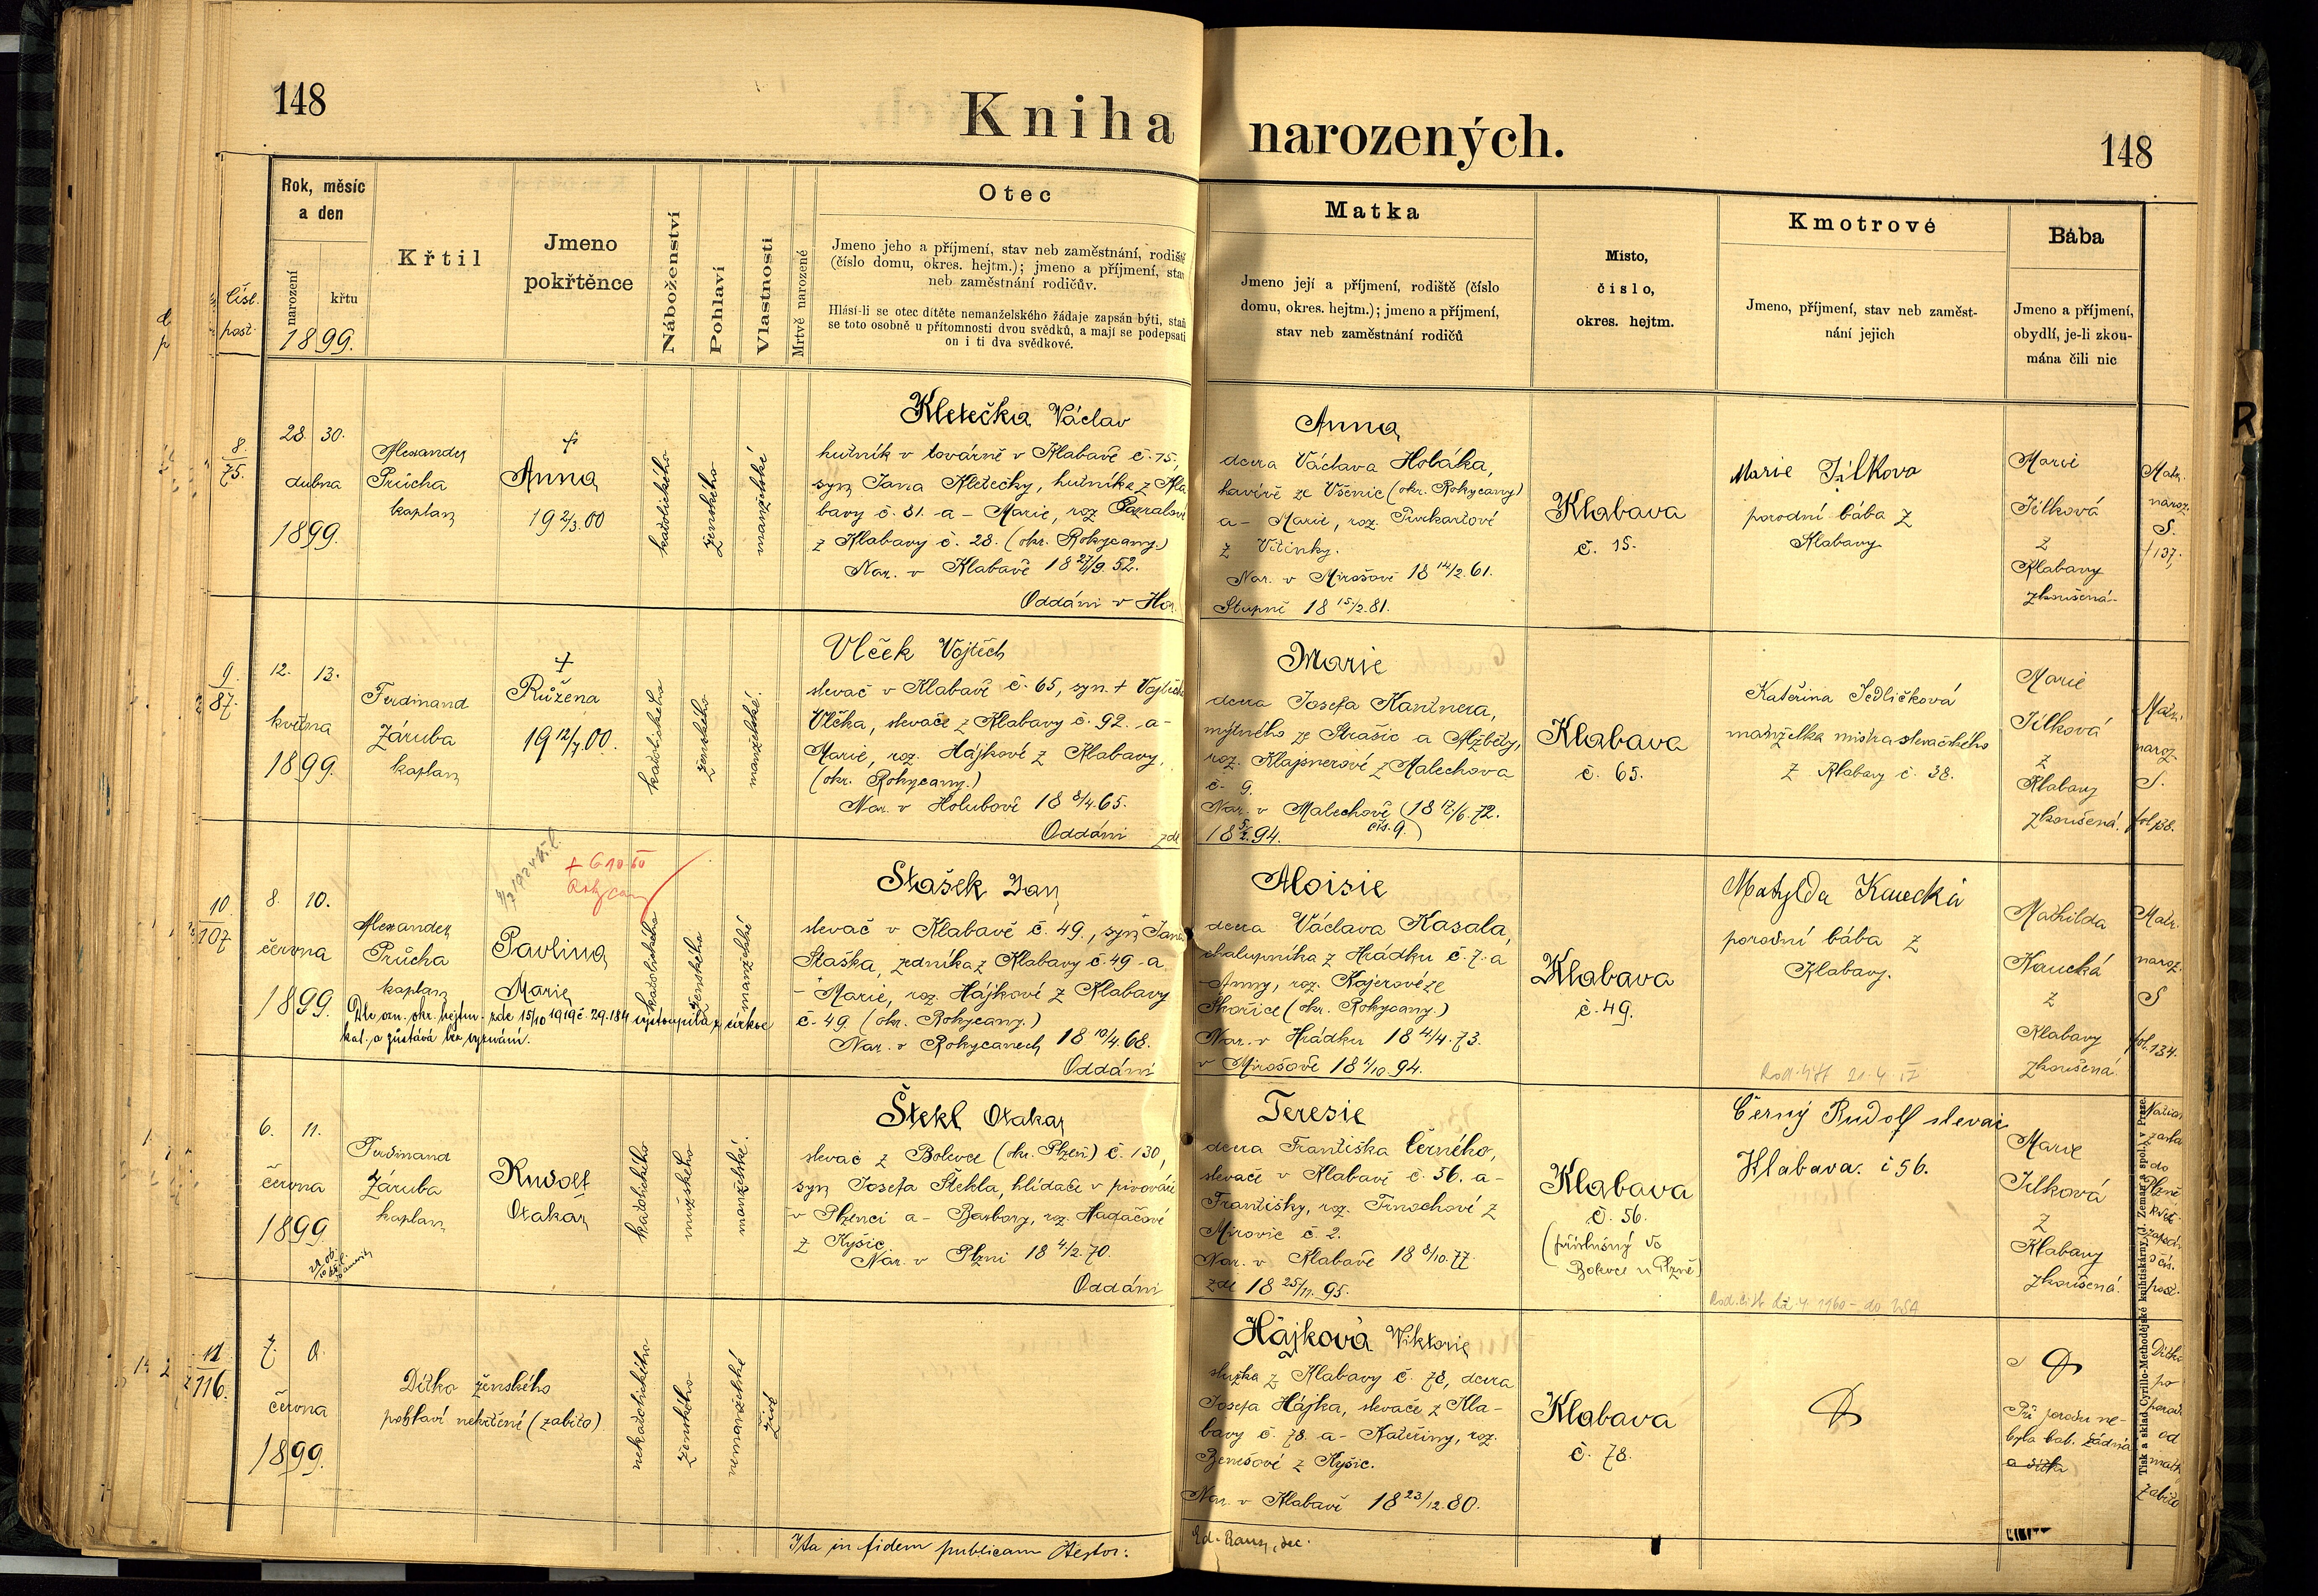 148
Kniha narozených.
148
Čísl. post.
Rok, měsíc a den
narození
křtu
1899.
Křtil
Jmeno pokřtěnce
Náboženství
Pohlaví
Vlastnosti
Mrtvě narozené
Otec
Jmeno jeho a příjmení, stav neb zaměstnání, rodiště
(číslo domu, okres. hejtm.); jmeno a příjmení, stav
neb zaměstnání rodičův.
Hlásí-li se otec dítěte nemanželského žádaje zapsán býti, staň
se toto osobně u přítomnosti dvou svědků, a mají se podepsati
on i ti dva svědkové.
Matka
Jmeno její a příjmení, rodiště (číslo
domu, okres. hejtm.); jmeno a příjmení,
stav neb zaměstnání rodičů
Místo,
číslo,
okres. hejtm.
Kmotrové
Jmeno, příjmení, stav neb zaměst-
nání jejich
Bába
Jmeno a příjmení,
obydlí, je-li zkou-
mána čili nic
8.
75.
28. 30.
dubna
1899.
Alexander
Průcha
kaplan
+
Anna
19 2/3. 00
katolického
ženského
manželské
Kletečka Václav
hutník v továrně v Klabavě č. 15,
syn Jana Kletečky, hutníka z Kla
bavy č. 81. a - Marie, roz.
z Klabavy č. 28. (okr. Rokycany.)
Nar. v Klabavě 18 27/9. 52.
Oddáni v Hor.
Anna
dcera Václava Holáka,
havíře ze Všenic (okr. Rokycany)
a - Marie, roz. Purkartové
z Vitinky.
Nar. v Mirošově 18 14/2. 61.
Stupně 18 15/2. 81.
Klabava
č. 15.
Marie Jílkova
porodní bába z
Klabavy
Marie
Jílková
z
Klabavy
zkoušená.
Matr.
naroz.
S.
f 137.
9.
87.
12. 13.
května
1899.
Ferdinand
Záruba
kaplan
+
Růžena
19 12/7. 00.
katolického
ženského
manželské.
Vlček Vojtěch
slevač v Klabavě č. 65, syn + Vojtěcha
Vlčka, slevače z Klabavy č. 92. a -
Marie, roz. Hájkové z Klabavy,
(okr. Rokycany.)
Nar. v Holubově 18 8/4. 65.
Oddáni zde
Marie
dcera Josefa Kantnera,
mýtného ze Strašic a Alžběty,
roz. Klajsnerové z Malechova
č. 9.
Nar. v Malechově (18 17/6. 72.
18 5/2. 94. čís. 9.)
Klabava
č. 65.
Kateřina Jedličková
manželka mistra slevačského
z Klabavy č. 38.
Marie
Jílková
z
Klabavy
zkoušená.
Matr.
naroz.
S.
fol 138.
10.
107
8. 10.
června
1899.
Alexander
Průcha
kaplan
+ 6 10. 60
Rokycany
Pavlina
Marie
katolického
ženského
manželské
Dle ozn. okr. hejtm. zde 15/10 1919 č. 29.184 vystoupila z církve
kat. a zůstává bez vyznání.
Stašek Jan
slevač v Klabavě č. 49., syn Jana
Staška, zedníka z Klabavy č. 49 a
- Marie, roz. Hájkové z Klabavy
č. 49 (okr. Rokycany.)
Nar. v Rokycanech 18 10/4. 68.
Oddáni
Aloisie
dcera Václava Kasala,
chalupníka z Hrádku č. 7. a
Anny, roz. Kojerové ze
Skořice (okr. Rokycany.)
Nar. v Hrádku 18 4/4. 73.
v Mirošově 18 1/10. 94.
Klabava
č. 49.
Matylda Kaucká
porodní bába z
Klabavy.
Mathilda
Kaucká
z
Klabavy
zkoušená.
Matr.
naroz.
S
fol. 134.
6. 11.
června
1899
Ferdinand
Záruba
kaplan
Rudolf
Otakar
katolického
mužského
manželské.
Štekl Otakar
slevač z Bolevce (okr. Plzeň) č. 130,
syn Josefa Štekla, hlídače v pivováře
v Plzenci a - Barbory, roz. Hadačové
z Kyšic.
Nar. v Plzni 18 4/2. 70.
Oddáni
Teresie
dcera Františka Černého,
slevače v Klabavě č. 56. a -
Františky, roz. Trnochové z
Mirovic č. 2.
Nar. v Klabavě 18 8/10. 77.
zde 18 25/11. 95.
Klabava
č. 56.
(příslušný do
Bolevce u Plzně)
Černý Rudolf slevač
Klabava. č 56.
Marie
Jílková
z
Klabavy
zkoušená.
do
Plzně
11
116.
7. 0.
června
1899.
Dítko ženského
pohlaví nekřtěné (zabito)
nekatolického
ženského
nemanželské
živé
Hájková Viktorie
služka z Klabavy č. 78, dcera
Josefa Hájka, slevače z Kla-
bavy č. 78. a - Kateřiny, roz.
Benešové z Kyšic.
Nar. v Klabavě 18 23/12. 80.
Klabava
č. 78.
Při porodu ne-
byla bab. žádná
Dítko
po
porod.
od
matk
zabito
Ita in fidem publicam testor:
Tisk a sklad Cyrillo-Methodějské knihtiskárny (J. Zeman a spol.) v Praze.
R